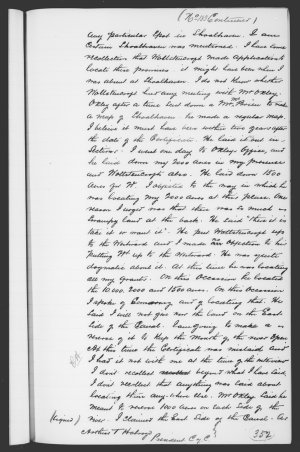 (No 203 Continued)
any particular spot in Shoalhaven. I am
Certain Shoalhaven was mentioned. I have some
recollection that Wollstonecraft made application to
locate these promises - it might have been when I
was absent at Shoalhaven. I do not know whether
Wollstonecraft had any meeting with Mr Oxley.
Oxley after a time sent down a Mr to
a map of Shoalhaven he made a regular map.
I believe it must have been within two years after
the date of the He laid it out in
Sections. I went one day to Oxleys Office, and
he laid down my 2000 acres in my presence
and Wollstonecraft also. He laid down 1500
Acres for W. I objected to the way in which he
was locating my 2000 acres at this place. One
reason I urged was that there was so much
Swampy land at the back. He said "there it is
take it or want it". He put Wollstonecraft up
to the Westward and I made an objection to his
putting W up to the Westward. He was quite
dogmatic about it. At this time he was locating
all my Grants. On this Occasion he located
the 10,000. 2000 and 1500 acres. On this Occasion
I spoke of and of locating that. He
said I will not give you the land on the East
side of the Canal. I am going to make a
reserve of it to keep the Mouth of the river open.
At this time the was mislaid and
I had it not with me at the time of the interview
I dont recollect beyond what I have said.
I dont recollect that anything was said about
locating this anywhere else. Mr Oxley said he
meant to reserve 1000 acres on each side of the
river. I claimed the East Side of the Canal - as
(signed) Arthur T Holroyd
President C of C
352